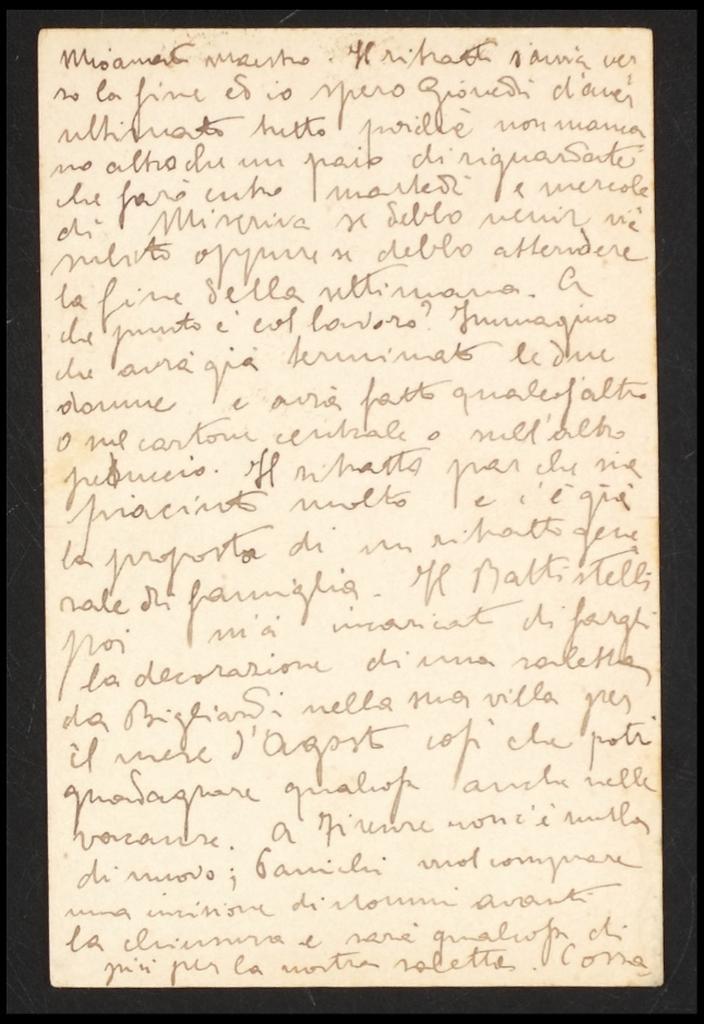 Mio amato maestro. Il ritratto s'avvia ver
so la fine ed io spero Giovedì d'aver
ultimato tutto poichè non manca
no altro che un paio di riguardate
che farò entro martedì e mercole
dì. Mi scriva se debbo venir via
subito oppure se debbo attendere
la fine della settimana. A
che punto è col lavoro? Immagino
che avrà già terminato le due
donne e avrà fatto qualcos'altro
o nel cartone centrale o nell'altro
peduccio. Il ritratto par che sia
piaciuto molto e c'è già
la proposta di un ritratto gene
rale di famiglia. Il Battistelli
poi m'à incaricato di fargli
la decorazione di una saletta
da Bigliardi nella sua villa per
il mese d'Agosto così che potrò
guadagnare qualcosa anche nelle
vacanze. A Firenze non c'è nulla
di nuovo; vuol comprare
una incisione di avanti
la chiusura e sarà qualcosa di
più per la nostra saletta.